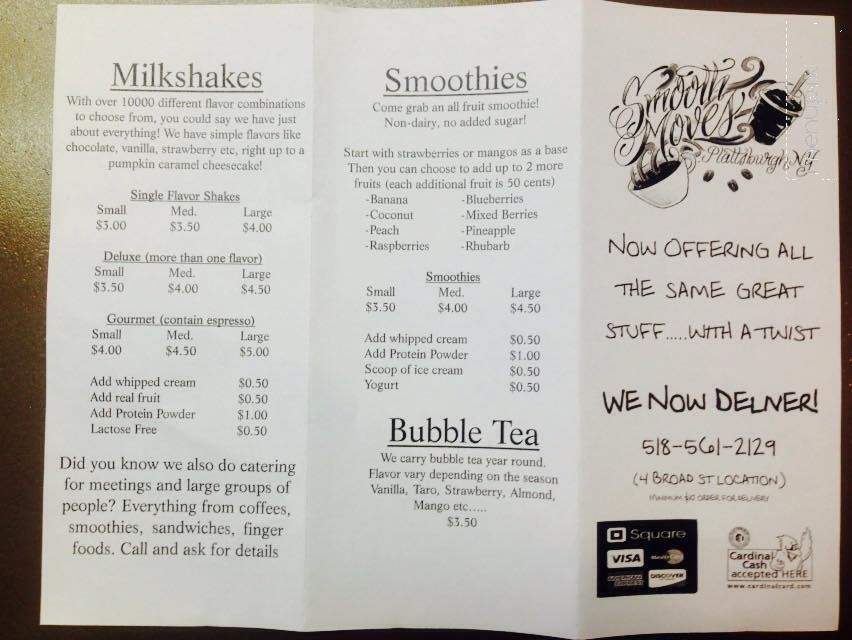 Milkshakes
With over 10000 different flavor combinations
to choose from, you could say we have just
about everything! We have simple flavors like
chocolate, vanilla, strawberry etc, right up to a
pumpkin caramel cheesecake!
Single Flavor Shakes
Small Med. Large
$3.00 $3.50 $4.00
Deluxe (more than one flavor)
Small Med. Large
$3.50 $4.00 $4.50
Gourmet (contain espresso)
Small Med. Large
$4.00 $4.50 $5.00
Add whipped cream $0.50
Add real fruit $0.50
Add Protein Powder $1.00
Lactose Free $0.50
Did you know we also do catering
for meetings and large groups of
people? Everything from coffees,
smoothies, sandwiches, finger
foods. Call and ask for details
Smoothies
Come grab an all fruit smoothie!
Non-dairy, no added sugar!
Start with strawberries or mangos as a base
Then you can choose to add up to 2 more
fruits (each additional fruit is 50 cents)
-Banana -Blueberries
-Coconut -Mixed Berries
-Peach -Pineapple
-Raspberries -Rhubarb
Smoothies
Small Med. Large
$3.50 $4.00 $4.50
Add whipped cream $0.50
Add Protein Powder $1.00
Scoop of ice cream $0.50
Yogurt $0.50
Bubble Tea
We carry bubble tea year round.
Flavor vary depending on the season
Vanilla, Taro, Strawberry, Almond,
Mango etc.....
$3.50
Smooth
Moves
Plattsburgh, NY
NOW OFFERING ALL
THE SAME GREAT
STUFF.....WITH A TWIST
WE NOW DELIVER!
518-561-2129
(4 BROAD ST LOCATION)
MINIMUM $10 ORDER FOR DELIVERY
Square
VISA MasterCard
AMERICAN EXPRESS DISCOVER
Cardinal
Cash
accepted HERE
www.cardinalcard.com